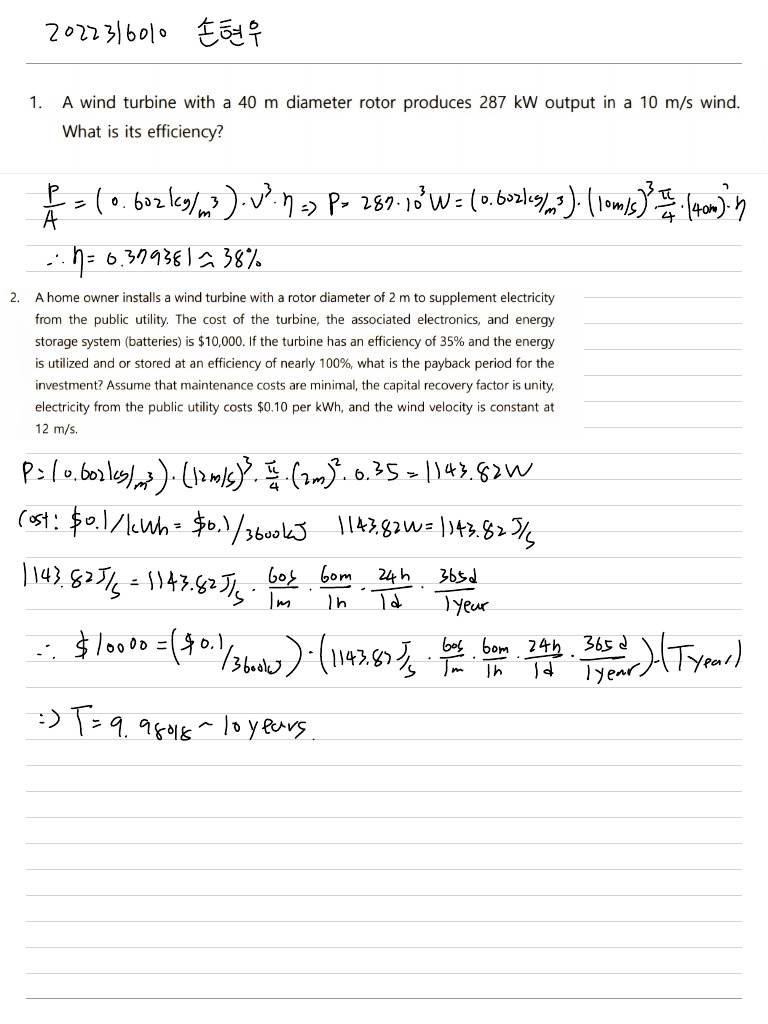 2022316010 손현우
1. A wind turbine with a 40 m diameter rotor produces 287 kW output in a 10 m/s wind.
What is its efficiency?
P/A = (0.602kg/m³)·V³·η => P= 287·10³W = (0.602kg/m³)·(10m/s)³ π/4·(40m)²·η
∴ η = 0.379381 ≃ 38%
2. A home owner installs a wind turbine with a rotor diameter of 2 m to supplement electricity
from the public utility. The cost of the turbine, the associated electronics, and energy
storage system (batteries) is $10,000. If the turbine has an efficiency of 35% and the energy
is utilized and or stored at an efficiency of nearly 100%, what is the payback period for the
investment? Assume that maintenance costs are minimal, the capital recovery factor is unity,
electricity from the public utility costs $0.10 per kWh, and the wind velocity is constant at
12 m/s.
P=(0.602kg/m³)·(12m/s)³·π/4·(2m)²·0.35=1143.82W
Cost: $0.1/kWh = $0.1/3600kJ 1143.82W=1143.82J/s
1143.82J/s = 1143.82J/s · 60s/1m · 60m/1h · 24h/1d · 365d/1year
∴ $10000 = ($0.1/3600kJ)·(1143.82J/s · 60s/1m · 60m/1h · 24h/1d · 365d/1year)·(Tyear)
=> T= 9.98018 ~ 10years.